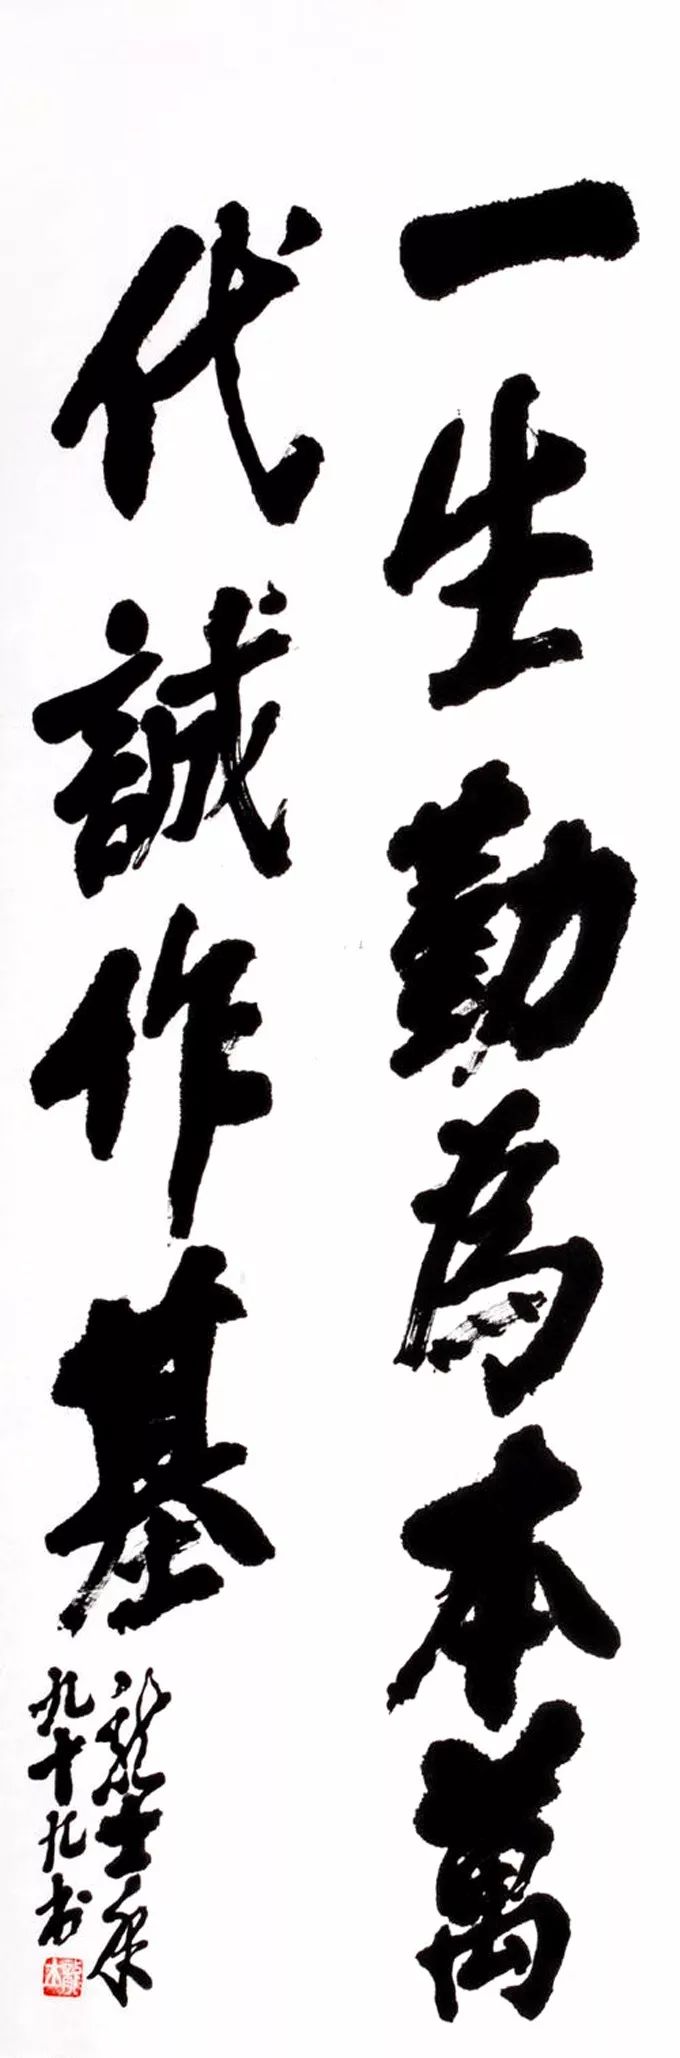 一生勤為本萬
代誠作基
龍士
九十九书